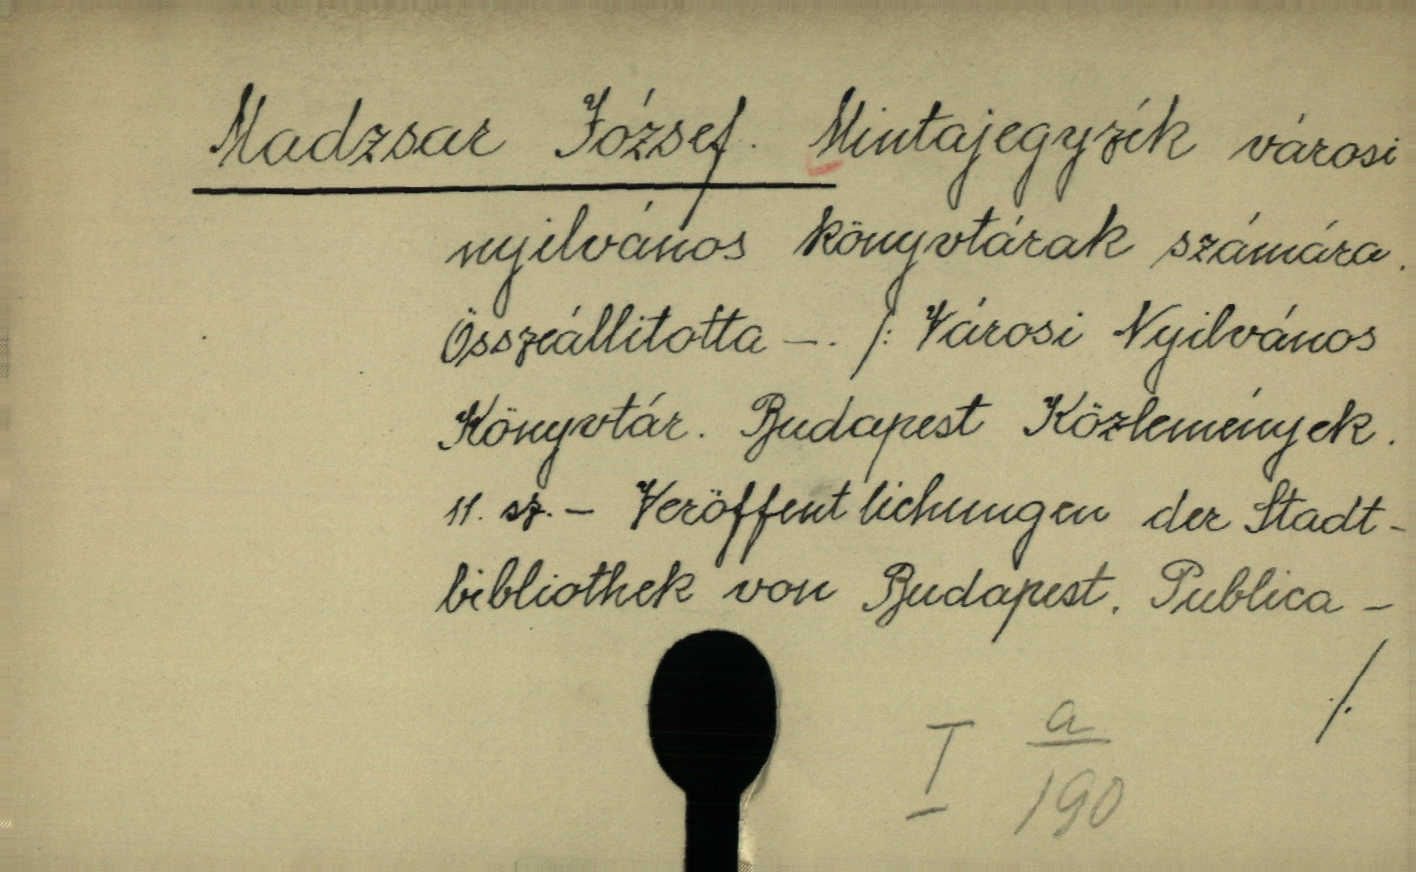 Madzsar József. Mintajegyzék városi
nyilvános könyvtárak számára.
Összeállitotta —. /: Városi Nyilvános
Könyvtár. Budapest Közlemények.
11. sz. — Veröffentlichungen der Stadt-
bibliothek von Budapest. Publica-
./.
I a
190